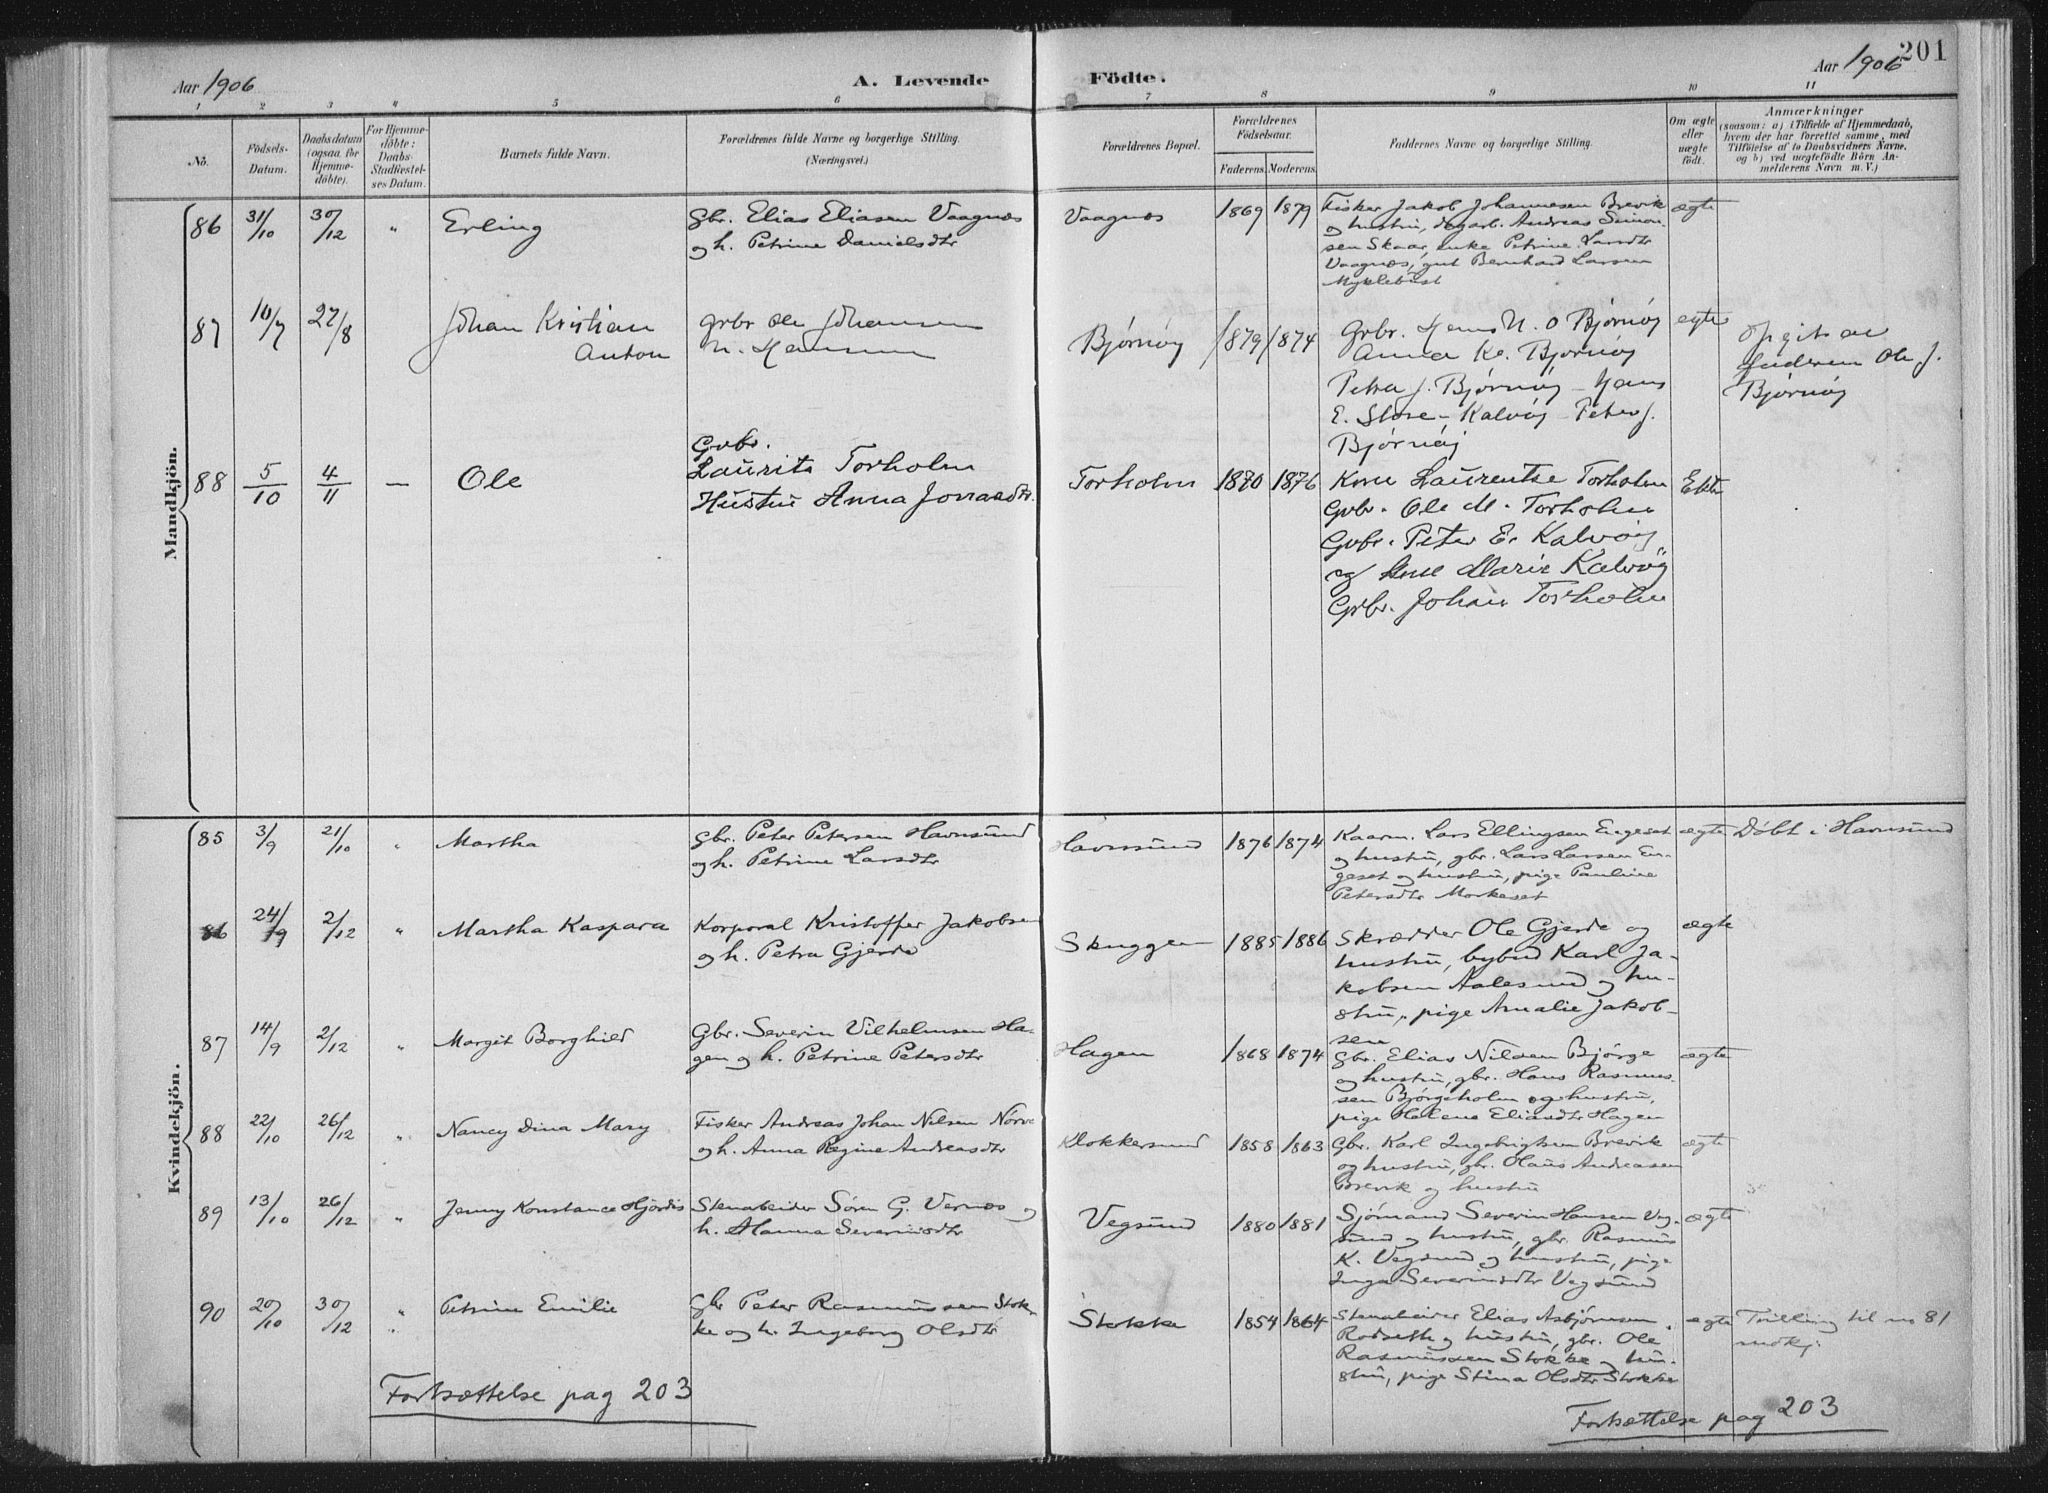 201
Aar 1906
A. Levende
Födte.
Aar 1906
1 2 3 4 5 6 7 8 9 10 11
No.
Födsels-
Datum.
Daabsdatum
(ogsaa for
Hjemme-
döbte).
For Hjemme-
döbte:
Daabs-
Stadfæstel-
ses Datum.
Barnets fulde Navn.
Forældrenes fulde Navne og borgerlige Stilling.
(Næringsvei.)
Forældrenes Bopæl.
Forældrenes
Födselsaar.
Faderens. Moderens.
Faddernes Navne og borgerlige Stilling.
Om ægte
eller
uægte
födt.
Anmærkninger
(saasom: a) i Tilfælde af Hjemmedaab,
hvem der har forrettet samme, med
Tilföielse af to Daabsvidners Navne,
og b) ved uægtefödte Börn An-
melderens Navn m. V.)
Mandkjön.
86 31/10 30/12 " Erling
Gbr. Elias Eliasen Vaagnæs
og h. Petrine Danielsdtr
Vaagnæs 1869 1879
Fisker Jakob Johannesen Brevik
og hustru, dagarb. Andreas Simon-
sen Skaar, enke Petrine Larsdtr
Vaagnæs, gut Bernhard Larsen
Myklebust
ægte
87 10/7 27/8 Johan Kristian
Anton
Grbr Ole Johansen
Bjørnøy 1879 1874
Grbr. Hans N. o Bjørnøy
Anna Bjørnøy
Petra J. Bjørnøy - Hans
E. Slore - Kalvøy - Peter J.
Bjørnøy
egte
opgit av
faderen Ole J.
Bjørnøy
88 5/10 4/11 — Ole
Gbr.
Laurits Torholm
Hustru Anna Jonasdtr.
Torholm 1870 1876
Kone Laurentse Torholm
Gvbr. Ole M. Torholm
Gvbr. Peter E. Kalvøy
og Ane Marie Kalvøy
Grbr. Johan Torholm
Ekte
Kvindekjön.
85 3/9 21/10 " Martha
Gbr. Peter Petersen Havnsund
og h. Petrine Larsdtr
Havnsund 1876 1874
Kaarm. Lars Ellingsen Engeset
og hustru, gbr. Lars Larsen En-
geset og hustru, pige Pauline
Petersdtr Morkeset
ægte Döbt i Havnsund
86 24/9 2/12 " Martha Kaspara
Korporal Kristoffer Jakobsen
og h. Petra Gjerde
Skuggen 1885 1886
Skrædder Ole Gjerde og
hustru, bybud Karl Ja-
kobsen Aalesund og hu-
stru, pige Amalie Jakob-
sen
ægte
87 14/9 2/12 " Margit Borghild
Gbr. Severin Vilhelmsen Ha-
gen og h. Petrine Petersdtr
Hagen 1868 1874
Gbr. Elias Nilsen Bjørge
og hustru, gbr. Hans Rasmus-
sen Bjørgeholm og hustru,
pige Helene Eliasdtr Hagen
ægte
88 22/10 26/12 " Nancy Dina Mary
Fisker Andreas Johan Nilsen Nörve
og h. Anna Regine Andreasdtr
Klokkersund 1858 1863
Gbr. Karl Ingebrigtsen Brevik
og hustru, gbr. Hans Andreasen
Brevik og hustru
ægte
89 13/10 26/12 " Jenny Konstance Hjördis
Stenarbeider Sören G. Vernæs og
h. Hanna Severinsdtr
Vegsund 1880 1881
Sjömand Severin Hansen Veg-
sund og hustru, gbr. Rasmus
K. Vegsund og hustru, pige
Inga Severinsdtr Vegsund
ægte
90 20/10 30/12 " Petrine Emilie
Gbr Peter Rasmussen Stok-
ke og h. Ingeborg Olsdtr
Stokke 1854 1864
Stenarbeider Elias Asbjørnsen
Rødseth og hustru, gbr. Ole
Rasmussen Stokke og hu-
stru, pige Stina Olsdtr Stokke
ægte Tvilling til no 81
mdkj.
Fortsættelse pag 203
Fortsættelse pag 203